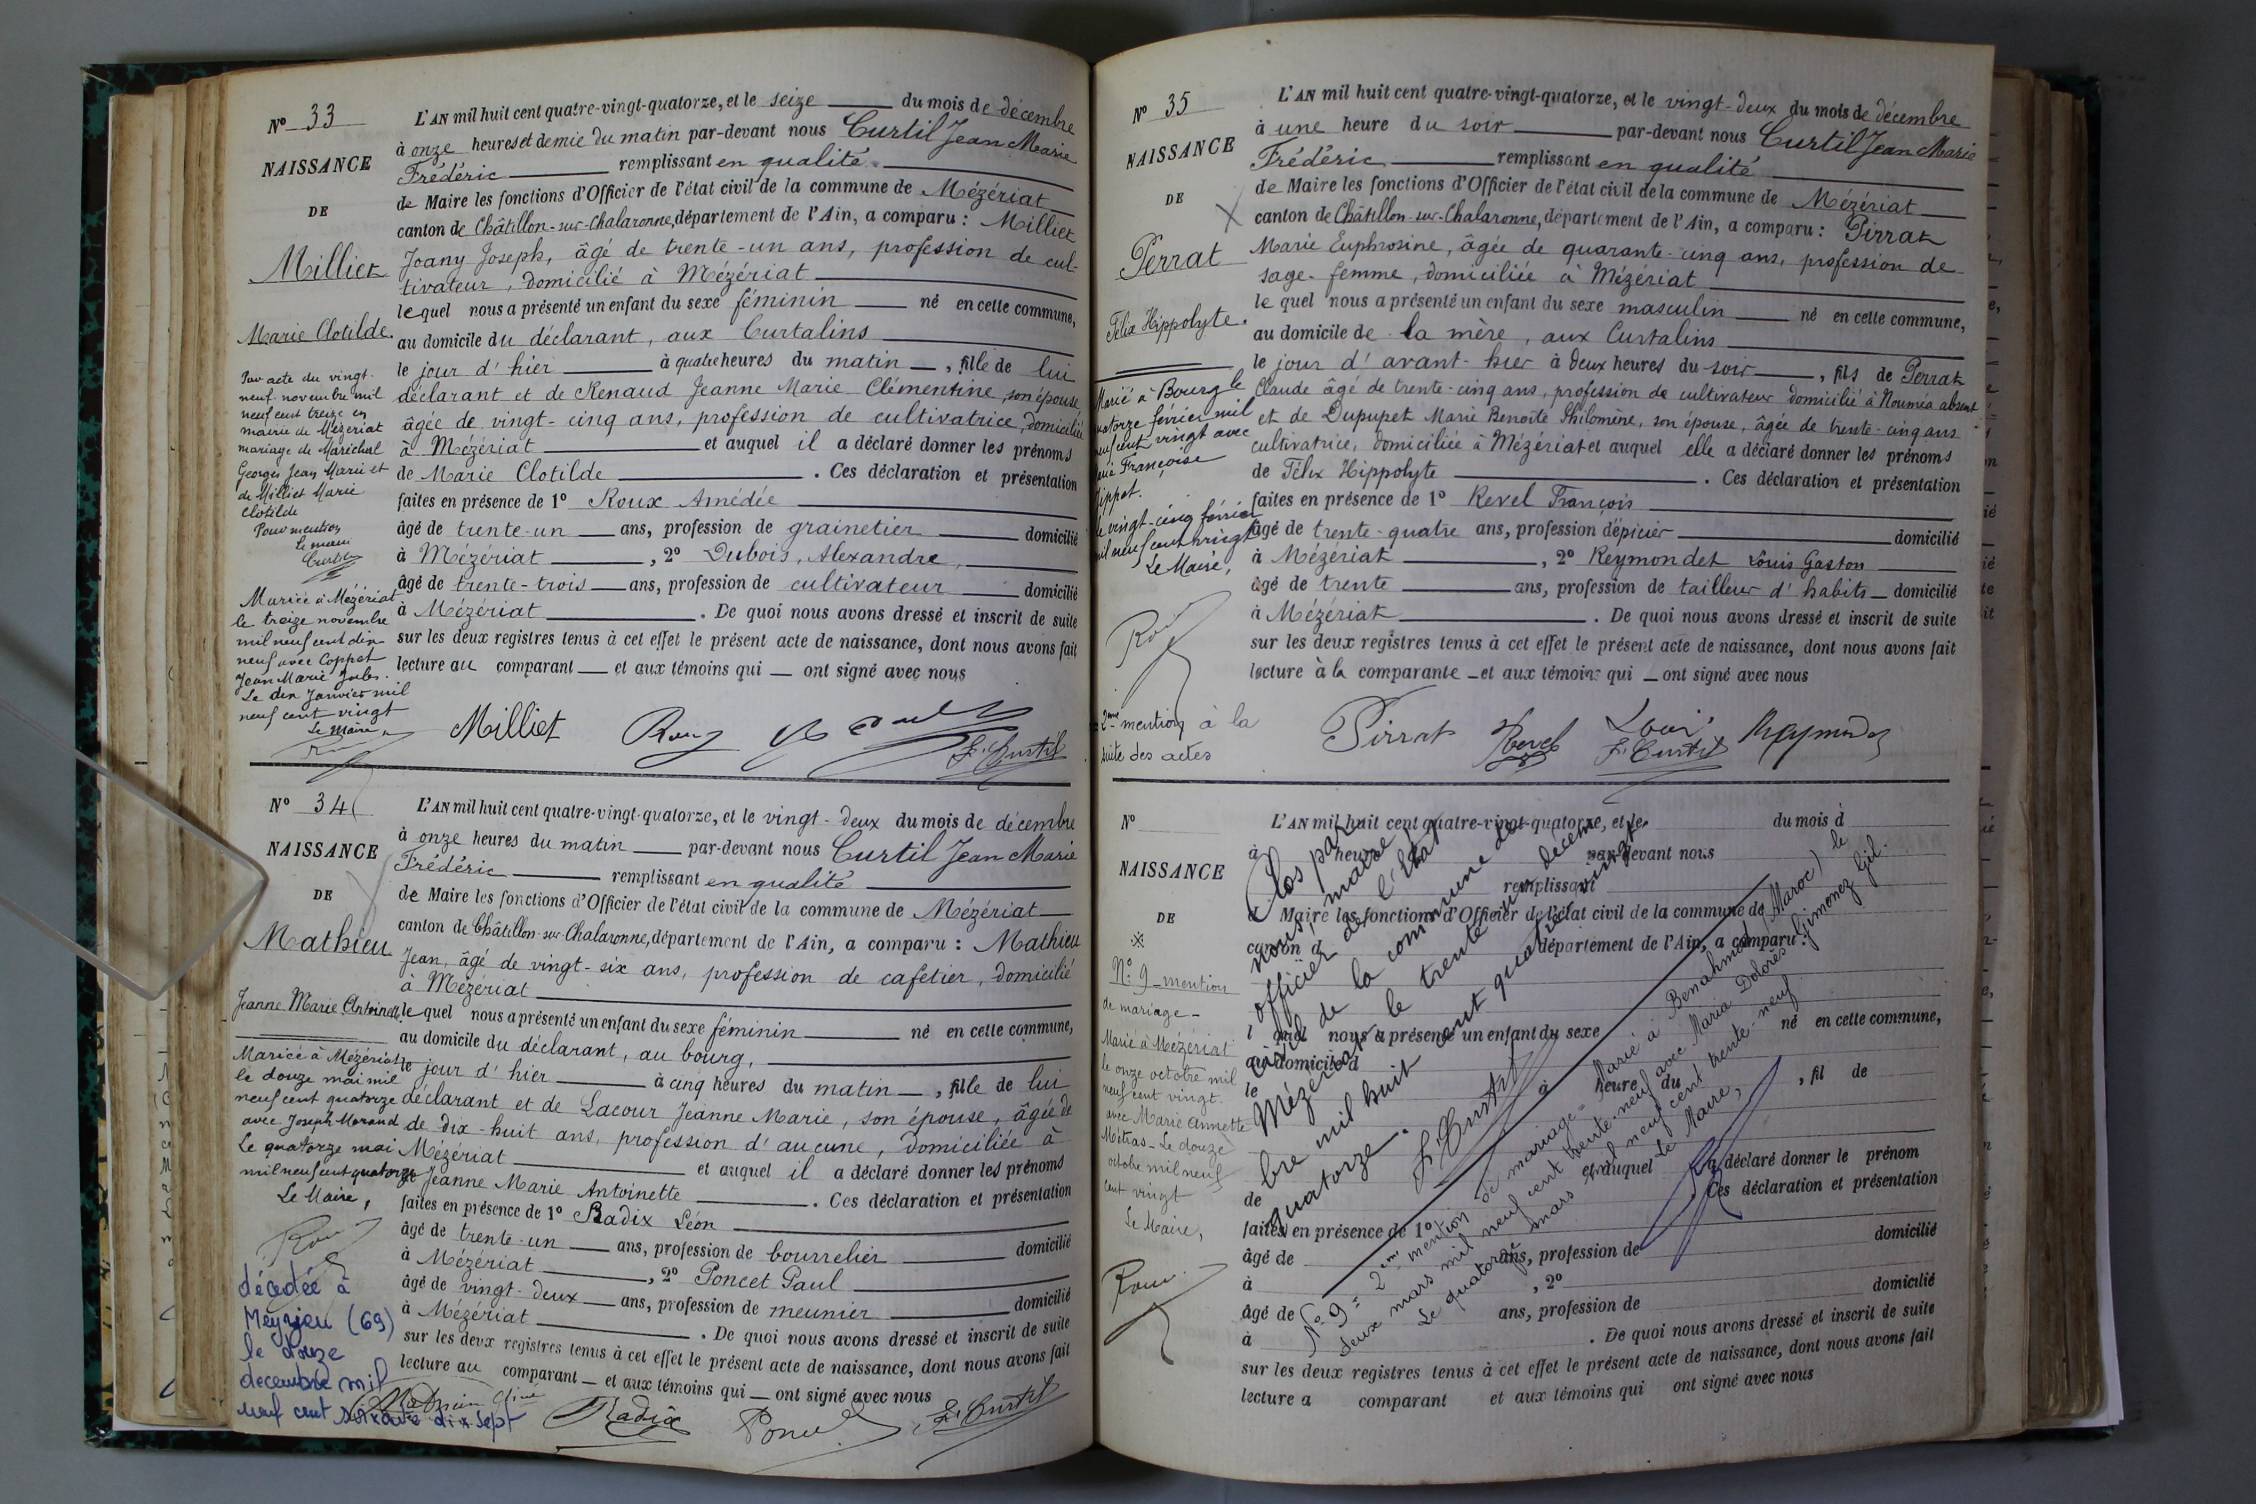 N° 33
NAISSANCE
DE
Milliet
Marie Clotilde.
Par acte du vingt-
neuf novembre mil
neuf cent treize en
mairie de Mézériat
mariage de Maréchal
Georges Jean Marie et
de Milliet Marie
Clotilde
Pour mention
Le maire
Curtil
Mariée à Mézériat
le treize novembre
mil neuf cent dix
neuf avec Coppet
Jean Marie Jules.
Le dix Janvier mil
neuf cent vingt
Le Maire,
L'AN mil huit cent quatre-vingt-quatorze, et le seize du mois de décembre
à onze heures et demie du matin par-devant nous Curtil Jean Marie
Frédéric remplissant en qualité
de Maire les fonctions d'Officier de l'état civil de la commune de Mézériat
canton de Châtillon-sur-Chalaronne, département de l'Ain, a comparu : Milliet
Joany Joseph, âgé de trente-un ans, profession de cul-
tivateur, domicilié à Mézériat
lequel nous a présenté un enfant du sexe féminin né en cette commune,
au domicile du déclarant, aux Curtalins
le jour d'hier à quatre heures du matin, fille de lui
déclarant et de Renaud Jeanne Marie Clémentine, son épouse
âgée de vingt-cinq ans, profession de cultivatrice, domiciliée
à Mézériat et auquel il a déclaré donner les prénoms
de Marie Clotilde. Ces déclaration et présentation
faites en présence de 1° Roux Amédée
âgé de trente-un ans, profession de grainetier domicilié
à Mézériat, 2° Dubois, Alexandre,
âgé de trente-trois ans, profession de cultivateur domicilié
à Mézériat. De quoi nous avons dressé et inscrit de suite
sur les deux registres tenus à cet effet le présent acte de naissance, dont nous avons fait
lecture au comparant et aux témoins qui ont signé avec nous
Milliet Roux F. Curtil
N° 34
NAISSANCE
DE
Mathieu
Jeanne Marie Antoinette.
Mariée à Mézériat
le douze mai mil
neuf cent quatorze
avec Joseph Morand
Le quatorze mai
mil neuf cent quatorze
Le Maire,
Roux
décédée à
Meyzieu (69)
le douze
decembre mil
neuf cent soixante dix sept
L'AN mil huit cent quatre-vingt-quatorze, et le vingt-deux du mois de décembre
à onze heures du matin par-devant nous Curtil Jean Marie
Frédéric remplissant en qualité
de Maire les fonctions d'Officier de l'état civil de la commune de Mézériat
canton de Châtillon-sur-Chalaronne, département de l'Ain, a comparu : Mathieu
Jean, âgé de vingt-six ans, profession de cafetier, domicilié
à Mézériat
lequel nous a présenté un enfant du sexe féminin né en cette commune,
au domicile du déclarant, au bourg,
le jour d'hier à cinq heures du matin, fille de lui
déclarant et de Lacour Jeanne Marie, son épouse, âgée de
de dix-huit ans, profession d'aucune, domiciliée à
Mézériat et auquel il a déclaré donner les prénoms
de Jeanne Marie Antoinette. Ces déclaration et présentation
faites en présence de 1° Radix Léon
âgé de trente-un ans, profession de bourrelier domicilié
à Mézériat, 2° Poncet Paul
âgé de vingt-deux ans, profession de meunier domicilié
à Mézériat. De quoi nous avons dressé et inscrit de suite
sur les deux registres tenus à cet effet le présent acte de naissance, dont nous avons fait
lecture au comparant et aux témoins qui ont signé avec nous
Radix Poncet F. Curtil
N° 35
NAISSANCE
DE
Perrat
Félix Hippolyte.
Marié à Bourg le
quatorze février mil
neuf cent vingt avec
Françoise
le vingt-cinq février
mil neuf cent vingt
Le Maire,
Roux
2ème mention à la
suite des actes
L'AN mil huit cent quatre-vingt-quatorze, et le vingt-deux du mois de décembre
à une heure du soir par-devant nous Curtil Jean Marie
Frédéric remplissant en qualité
de Maire les fonctions d'Officier de l'état civil de la commune de Mézériat
canton de Châtillon-sur-Chalaronne, département de l'Ain, a comparu : Pirrat
Marie Euphrosine, âgée de quarante-cinq ans, profession de
sage-femme, domiciliée à Mézériat
lequel nous a présenté un enfant du sexe masculin né en cette commune,
au domicile de la mère, aux Curtalins
le jour d'avant-hier à deux heures du soir, fils de Perrat
Claude âgé de trente-cinq ans, profession de cultivateur domicilié à Nouméa absent
et de Dupupet Marie Benoîte Philomène, son épouse, âgée de trente-cinq ans
cultivatrice, domiciliée à Mézériat et auquel elle a déclaré donner les prénoms
de Félix Hippolyte. Ces déclaration et présentation
faites en présence de 1° Revel François
âgé de trente-quatre ans, profession d'épicier domicilié
à Mézériat, 2° Reymondet Louis Gaston
âgé de trente ans, profession de tailleur d'habits domicilié
à Mézériat. De quoi nous avons dressé et inscrit de suite
sur les deux registres tenus à cet effet le présent acte de naissance, dont nous avons fait
lecture à la comparante et aux témoins qui ont signé avec nous
Pirrat Revel Louis Reymondet
F. Curtil
N°
NAISSANCE
DE
N° 9 mention
de mariage
Marié à Mézériat
le onze octobre mil
neuf cent vingt
avec Marie Annette
Métras. Le douze
octobre mil neuf
cent vingt
Le Maire,
Roux
L'AN mil huit cent quatre-vingt-quatorze, et le du mois d
à heure par-devant nous
remplissant
d Maire les fonctions d'Officier de l'état civil de la commune de
canton d département de l'Ain, a comparu :
l quel nous a présenté un enfant du sexe né en cette commune,
au domicile d
le à heure du , fil de
et auquel a déclaré donner le prénom
de . Ces déclaration et présentation
faites en présence de 1°
âgé de ans, profession de domicilié
à , 2°
âgé de ans, profession de domicilié
à . De quoi nous avons dressé et inscrit de suite
sur les deux registres tenus à cet effet le présent acte de naissance, dont nous avons fait
lecture a comparant et aux témoins qui ont signé avec nous
Clos par
nous, maire
officier de l'état
civil de la commune de
Mézériat le trente un décem
bre mil huit cent quatre vingt
quatorze.
F. Curtil
N° 9 = 2ème mention de mariage = Marié à Benahmed (Maroc) le
deux mars mil neuf cent trente-neuf avec Maria Dolorès Gimenez Gil.
Le quatorze mars mil neuf cent trente-neuf
Le Maire,